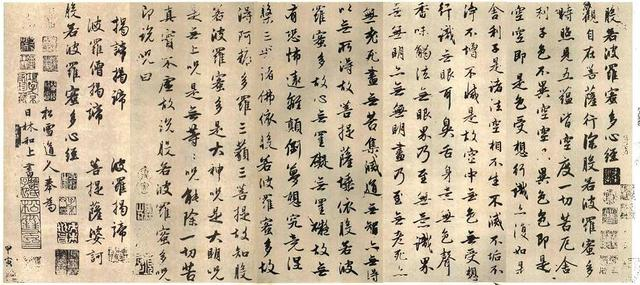 般若波羅蜜多心經
觀自在菩薩行深般若波羅蜜多
時照見五蘊皆空度一切苦厄舍
利子色不異空空不異色色即是
空空即是色受想行識亦復如是
舍利子是諸法空相不生不滅不垢不
淨不增不減是故空中無色無受想
行識無眼耳鼻舌身意無色聲
香味觸法無眼界乃至無意識界
無無明亦無無明盡乃至無老死亦
無老死盡無苦集滅道無智亦無得
以無所得故菩提薩埵依般若波
羅蜜多故心無罣礙無罣礙故無
有恐怖遠離顛倒夢想究竟涅
槃三世諸佛依般若波羅蜜多故
得阿耨多羅三藐三菩提故知般
若波羅蜜多是大神咒是大明咒
是無上咒是無等等咒能除一切苦
真實不虛故說般若波羅蜜多咒
即說咒曰
揭諦揭諦 波羅揭諦
波羅僧揭諦 菩提薩婆訶
般若波羅蜜多心經
松雪道人奉為
日林和上書
甲寅